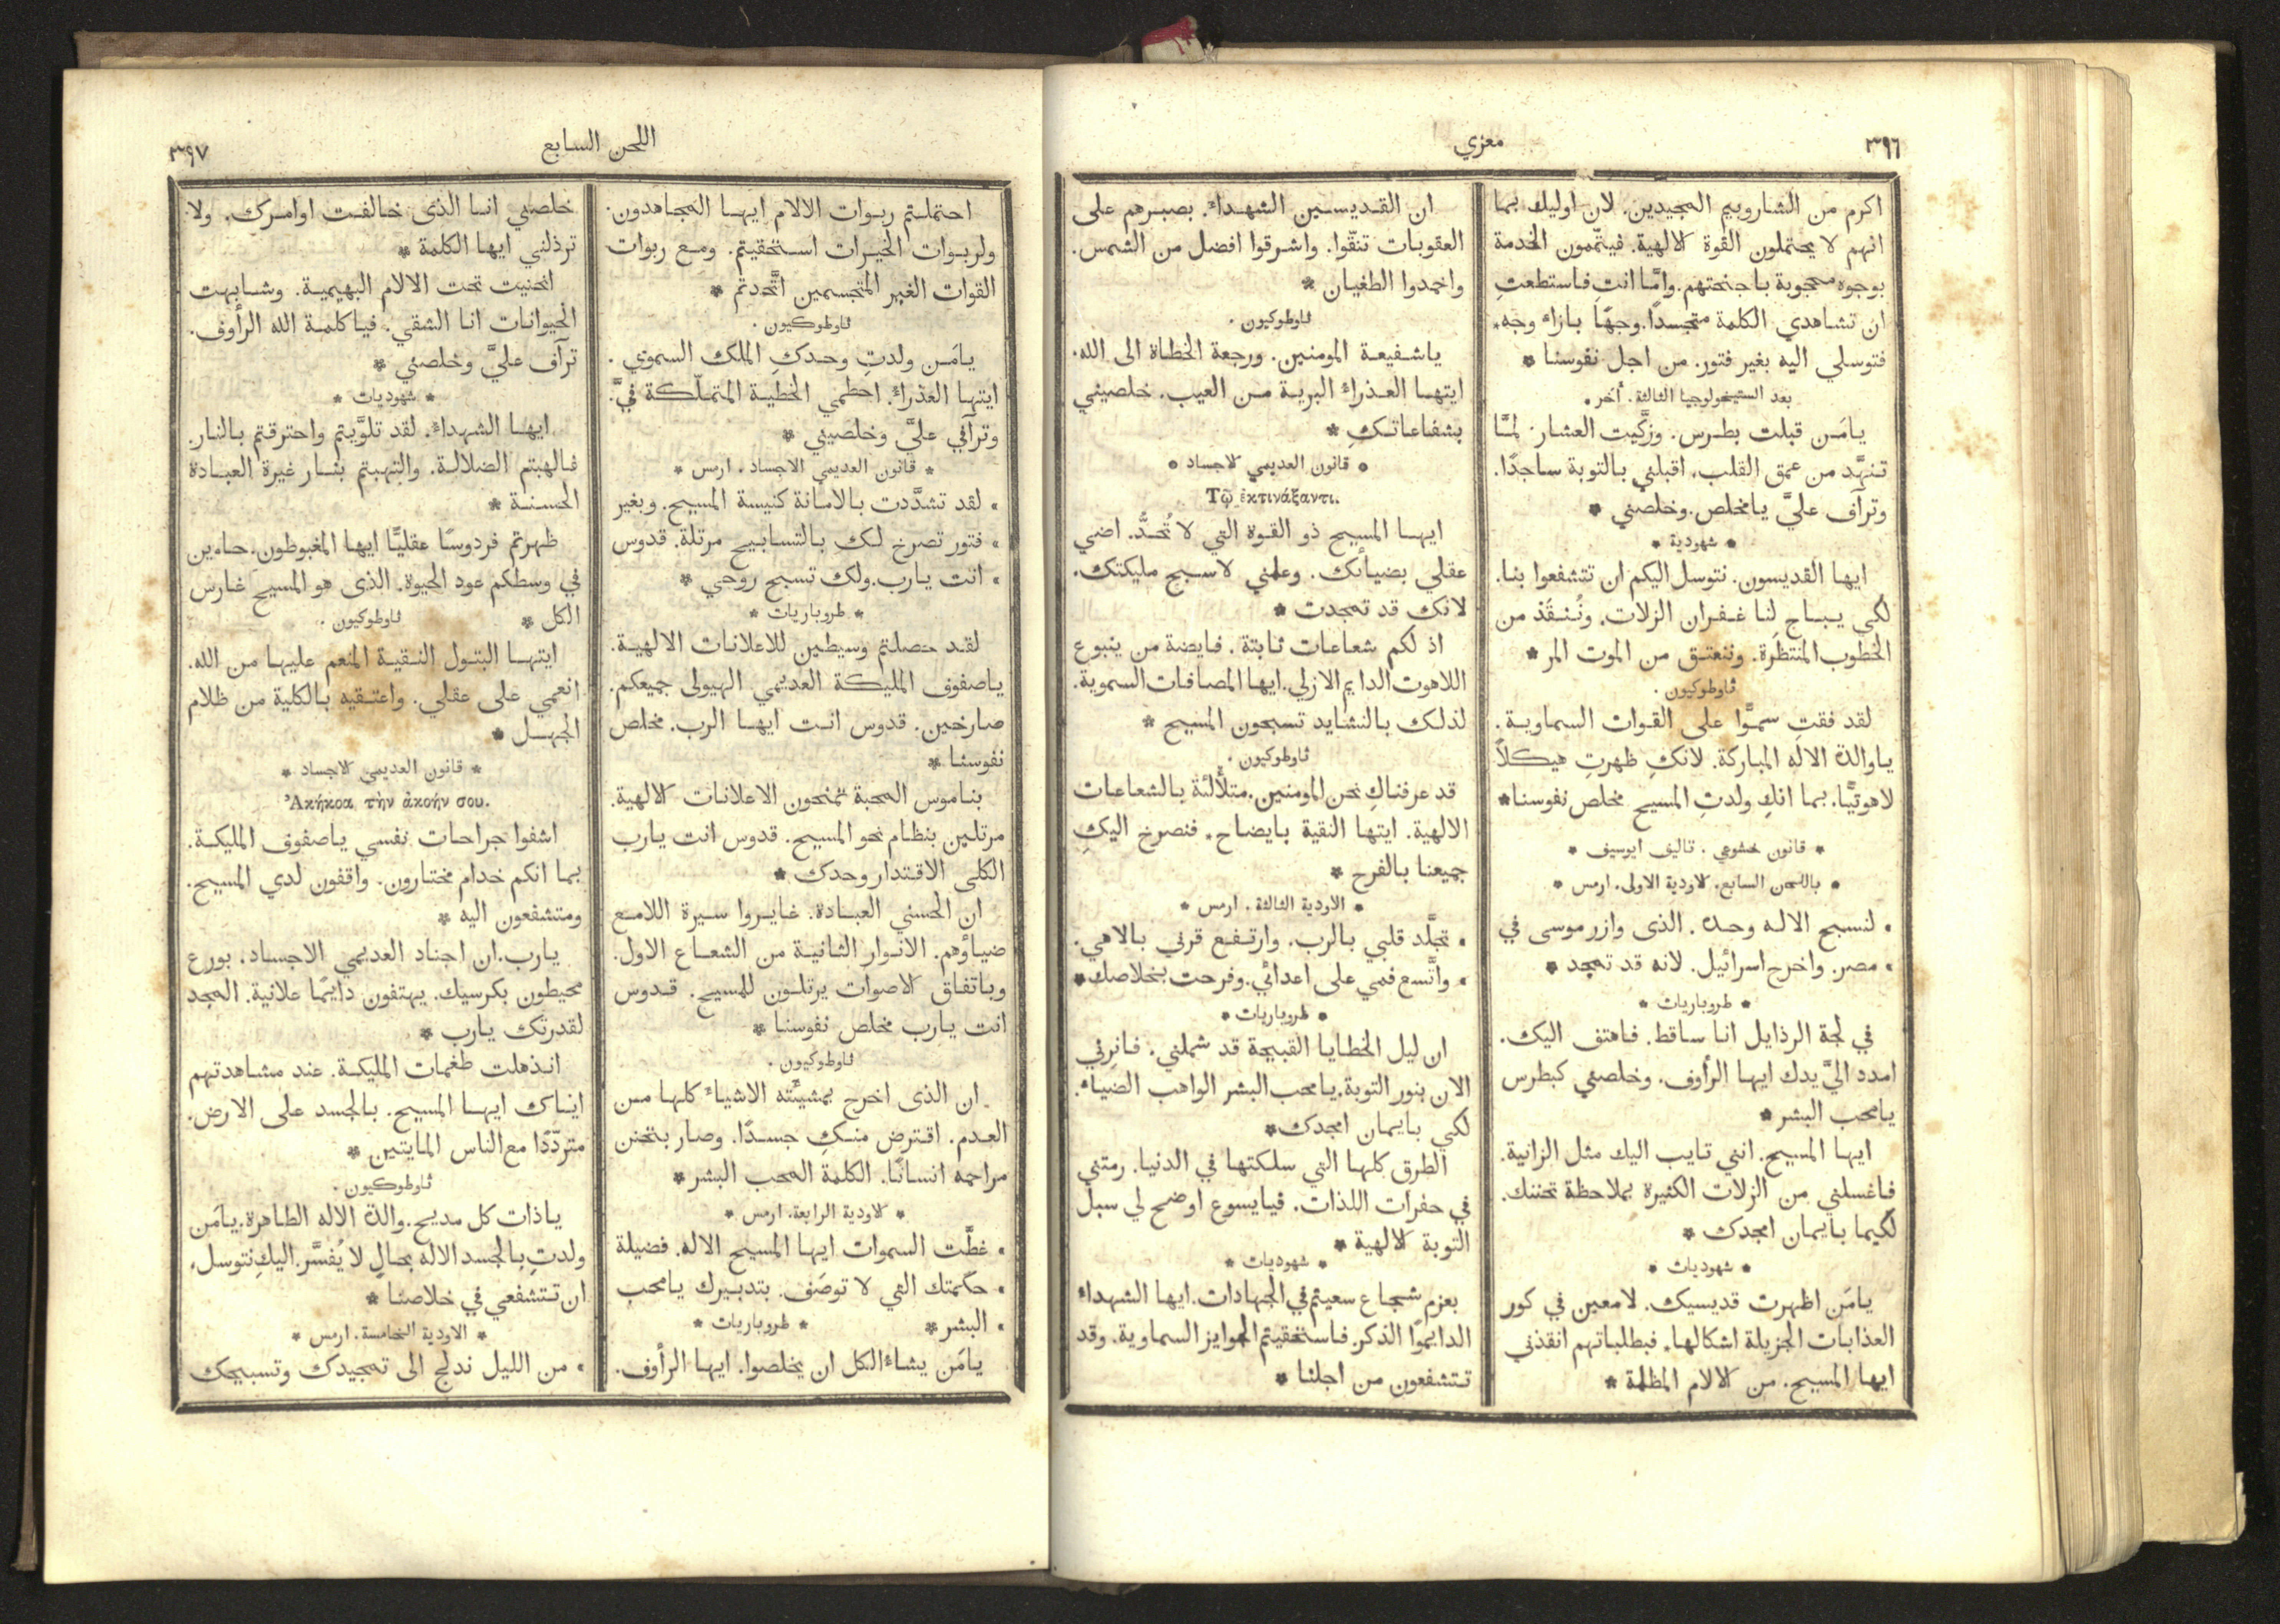 ٣٩٦
معزي
اكرم من الشاروبيم المجيدين. لان اوليك بما
انهم لا يحتملون القوة الالهية. فيتّممون الخدمة
بوجوه محجوبة باجنحتهم. وامَّا انتِ فاستطعتِ
ان تشاهدي الكلمة متجسدًا. وجهًا بازاء وجه.
فتوسلي اليه بغير فتور. من اجل نفوسنا *
بعد الستيخولوجيا الثالثة. أخر.
يامَن قبلت بطرس. وزكَّيت العشار لمَّا
تنهَّد من عمق القلب. اقبلني بالتوبة ساجدًا.
وترآف عليَّ يامخلص. وخلصني *
* شهودية *
ايها القديسون. نتوسل اليكم ان تتشفعوا بنا.
لكي يباح لنا غفران الزلات. ونُنقَذ من
الخطوب المنتظَرة. وننعتق من الموت المر *
ثاوطوكيون.
لقد فقتِ سموًّا على القوات السماوية.
ياوالدة الاله المباركة. لانكِ ظهرتِ هيكلاً
لاهوتيًّا. بما انكِ ولدتِ المسيح مخلص نفوسنا *
* قانون خشوعي. تاليف ايوسيف *
* باللحن السابع. الاودية الاولى. ارمس *
. لنسبح الاله وحده. الذى وازر موسى في
. مصر. واخرج اسرائيل. لانه قد تمجد *
* طروباريات *
في لجة الرذايل انا ساقط. فاهتف اليك.
امدد اليَّ يدك ايها الرأوف. وخلصني كبطرس
يامحب البشر *
ايها المسيح. انني تايب اليك مثل الزانية.
فاغسلني من الزلات الكثيرة بملاحظة تحننك.
لكيما بايمان امجدك *
* شهوديات *
يامَن اظهرت قديسيك. لامعين في كور
العذابات الجزيلة اشكالها. فبطلباتهم انقذني
ايها المسيح. من الالام المظلمة *
ان القديسين الشهداء. بصبرهم على
العقوبات تنقّوا. واشرقوا افضل من الشمس.
واخمدوا الطغيان *
ثاوطوكيون.
ياشفيعة المومنين. ورجعة الخطاة الى الله.
ايتها العذراء البرية من العيب. خلصيني
بشفاعاتكِ *
* قانون العديمي الاجساد *
Τῷ ἐκτινάξαντι.
ايها المسيح ذو القوة التي لا تُحدُّ. اضي
عقلي بضيائك. وعلمني لاسبح مليكتك.
لانك قد تمجدت *
اذ لكم شعاعات ثابتة. فايضة من ينبوع
اللاهوت الدايم الازلي. ايها المصافات السموية.
لذلك بالنشايد تسبحون المسيح *
ثاوطوكيون.
قد عرفناكِ نحن المومنين. متلألئة بالشعاعات
الالهية. ايتها النقية بايضاح. فنصرخ اليكِ
جميعنا بالفرح *
* الاودية الثالثة. ارمس *
. تجلَّد قلبي بالرب. وارتفع قرني بالاهي.
. واتَّسع فمي على اعدائي. وفرحت بخلاصك *
* طروباريات *
ان ليل الخطايا القبيحة قد شملني. فانرني
الان بنور التوبة. يامحب البشر الواهب الضياء.
لكي بايمان امجدك *
الطرق كلها التي سلكتها في الدنيا. رمتني
في حفرات اللذات. فيايسوع اوضح لي سبل
التوبة الالهية *
* شهوديات *
بعزم شجاع سعيتم في الجهادات. ايها الشهداء
الدايموا الذكر. فاستحقيتم الجوايز السماوية. وقد
تتشفعون من اجلنا *
اللحن السابع
٣٩٧
احتملتم ربوات الالام ايها المجاهدون.
ولربوات الخيرات استحقيتم. ومع ربوات
القوات الغير المتجسمين اتَّحدتم *
ثاوطوكيون.
يامَن ولدتِ وحدكِ الملك السموي.
ايتها العذراء. احطمي الخطية المتملّكة فيَّ.
وترآفي عليَّ وخلصيني *
* قانون العديمي الاجساد. ارمس *
. لقد تشدَّدت بالامانة كنيسة المسيح. وبغير
. فتور تصرخ لك بالتسابيح مرتلة. قدوس
. انت يارب. ولك تسبح روحي *
* طروباريات *
لقد حصلتم وسيطين للاعلانات الالهية.
ياصفوف المليكة العديمي الهيولى جميعكم.
صارخين. قدوس انت ايها الرب. مخلص
نفوسنا *
بناموس المحبة تمنحون الاعلانات الالهية.
مرتلين بنظام نحو المسيح. قدوس انت يارب
الكلى الاقتدار وحدك *
ان الحسني العبادة. غايروا سيرة اللامع
ضياؤهم. الانوار الثانية من الشعاع الاول.
وباتفاق الاصوات يرتلون للمسيح. قدوس
انت يارب مخلص نفوسنا *
ثاوطوكيون.
ان الذى اخرج بمشيئته الاشياء كلها من
العدم. اقترض منكِ جسدًا. وصار بتحنن
مراحمه انسانًا. الكلمة المحب البشر *
* الاودية الرابعة. ارمس *
. غطَّت السموات ايها المسيح الاله. فضيلة
. حكمتك التي لا توصَف. بتدبيرك يامحب
. البشر * * طروباريات *
يامَن يشاء الكل ان يخلصوا. ايها الرأوف.
خلصني انا الذى خالفت اوامرك. ولا
ترذلني ايها الكلمة *
انحنيت تحت الالام البهيمية. وشابهت
الحيوانات انا الشقي. فياكلمة الله الرأوف.
ترآف عليَّ وخلصني *
* شهوديات *
ايها الشهداء. لقد تلوَّيتم واحترقتم بالنار.
فالهبتم الضلالة. والتهبتم بنار غيرة العبادة
الحسنة *
ظهرتم فردوسًا عقليًّا ايها المغبوطون. حاوين
في وسطكم عود الحيوة. الذى هو المسيح غارس
الكل * ثاوطوكيون.
ايتها البتول النقية المنعم عليها من الله.
انعمي على عقلي. واعتقيه بالكلية من ظلام
الجهل *
* قانون العديمي الاجساد *
Ἀκήκοα τὴν ἀκοήν σου.
اشفوا جراحات نفسي ياصفوف المليكة.
بما انكم خدام مختارون. واقفون لدي المسيح.
ومتشفعون اليه *
يارب. ان اجناد العديمي الاجساد. بورع
محيطون بكرسيك. يهتفون دايمًا علانية. المجد
لقدرتك يارب *
انذهلت طغمات المليكة. عند مشاهدتهم
اياك ايها المسيح. بالجسد على الارض.
متردّدًا مع الناس المايتين *
ثاوطوكيون.
ياذات كل مديح. والدة الاله الطاهرة. يامَن
ولدتِ بالجسد الاله بحالٍ لا يُفسَّر. اليكِ نتوسل.
ان تتشفعي في خلاصنا *
* الاودية الخامسة. ارمس *
. من الليل ندلج الى تمجيدك وتسبيحك